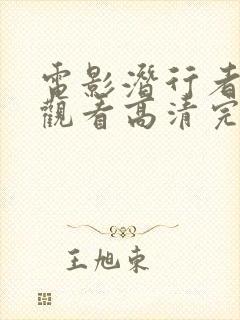 電影潛行者
觀看高清完
王旭東